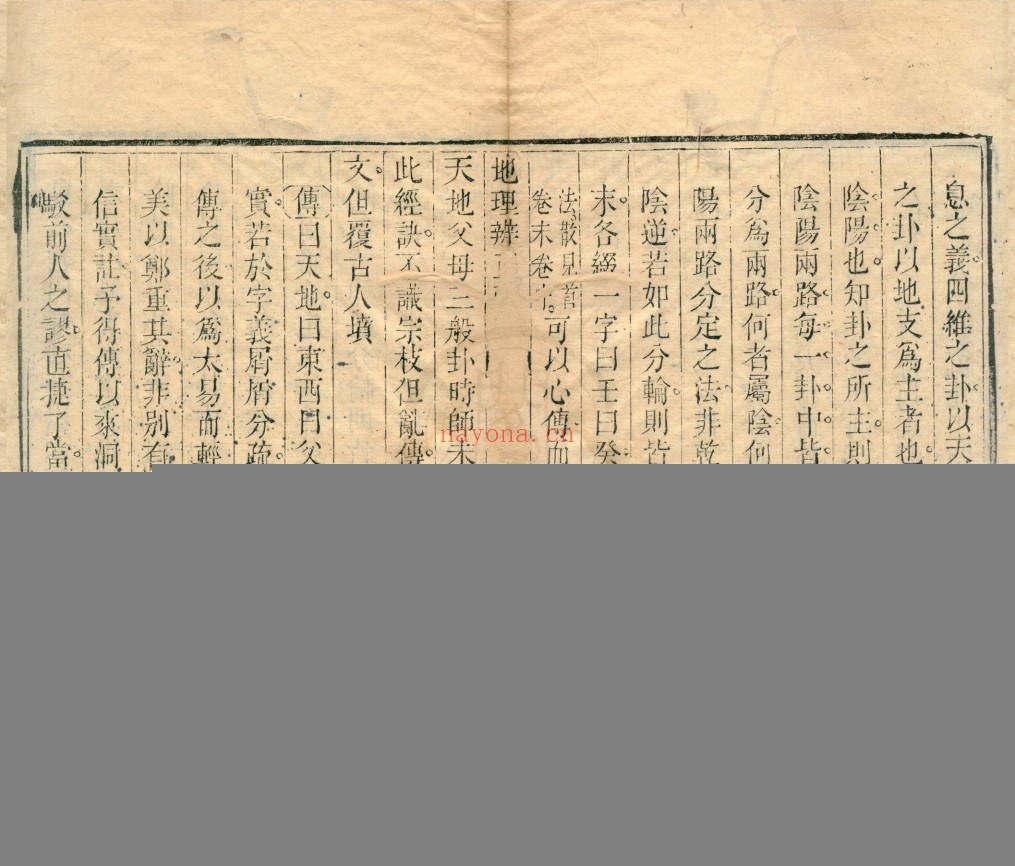 息之義四維之卦以天
之卦以地支爲主者也
陰陽也知卦之所主則
陰陽兩路每一卦中皆
分爲兩路何者屬陰何
陽兩路分定之法非乾
陰逆若如此分輪則皆
末各綴一字曰壬曰癸
法散見首
卷末卷
可以心傳而
地理辨
天地父母三般卦時師未
此經訣不識宗枝但亂傳
文但覆古人墳
傳曰天地曰東西曰父
實若於字義屑屑分疏
傳之後以爲太易而輕
美以鄭重其辭非別有
信實註予得傳以來洞
駁前人之謬直捷了當
nayona.cn